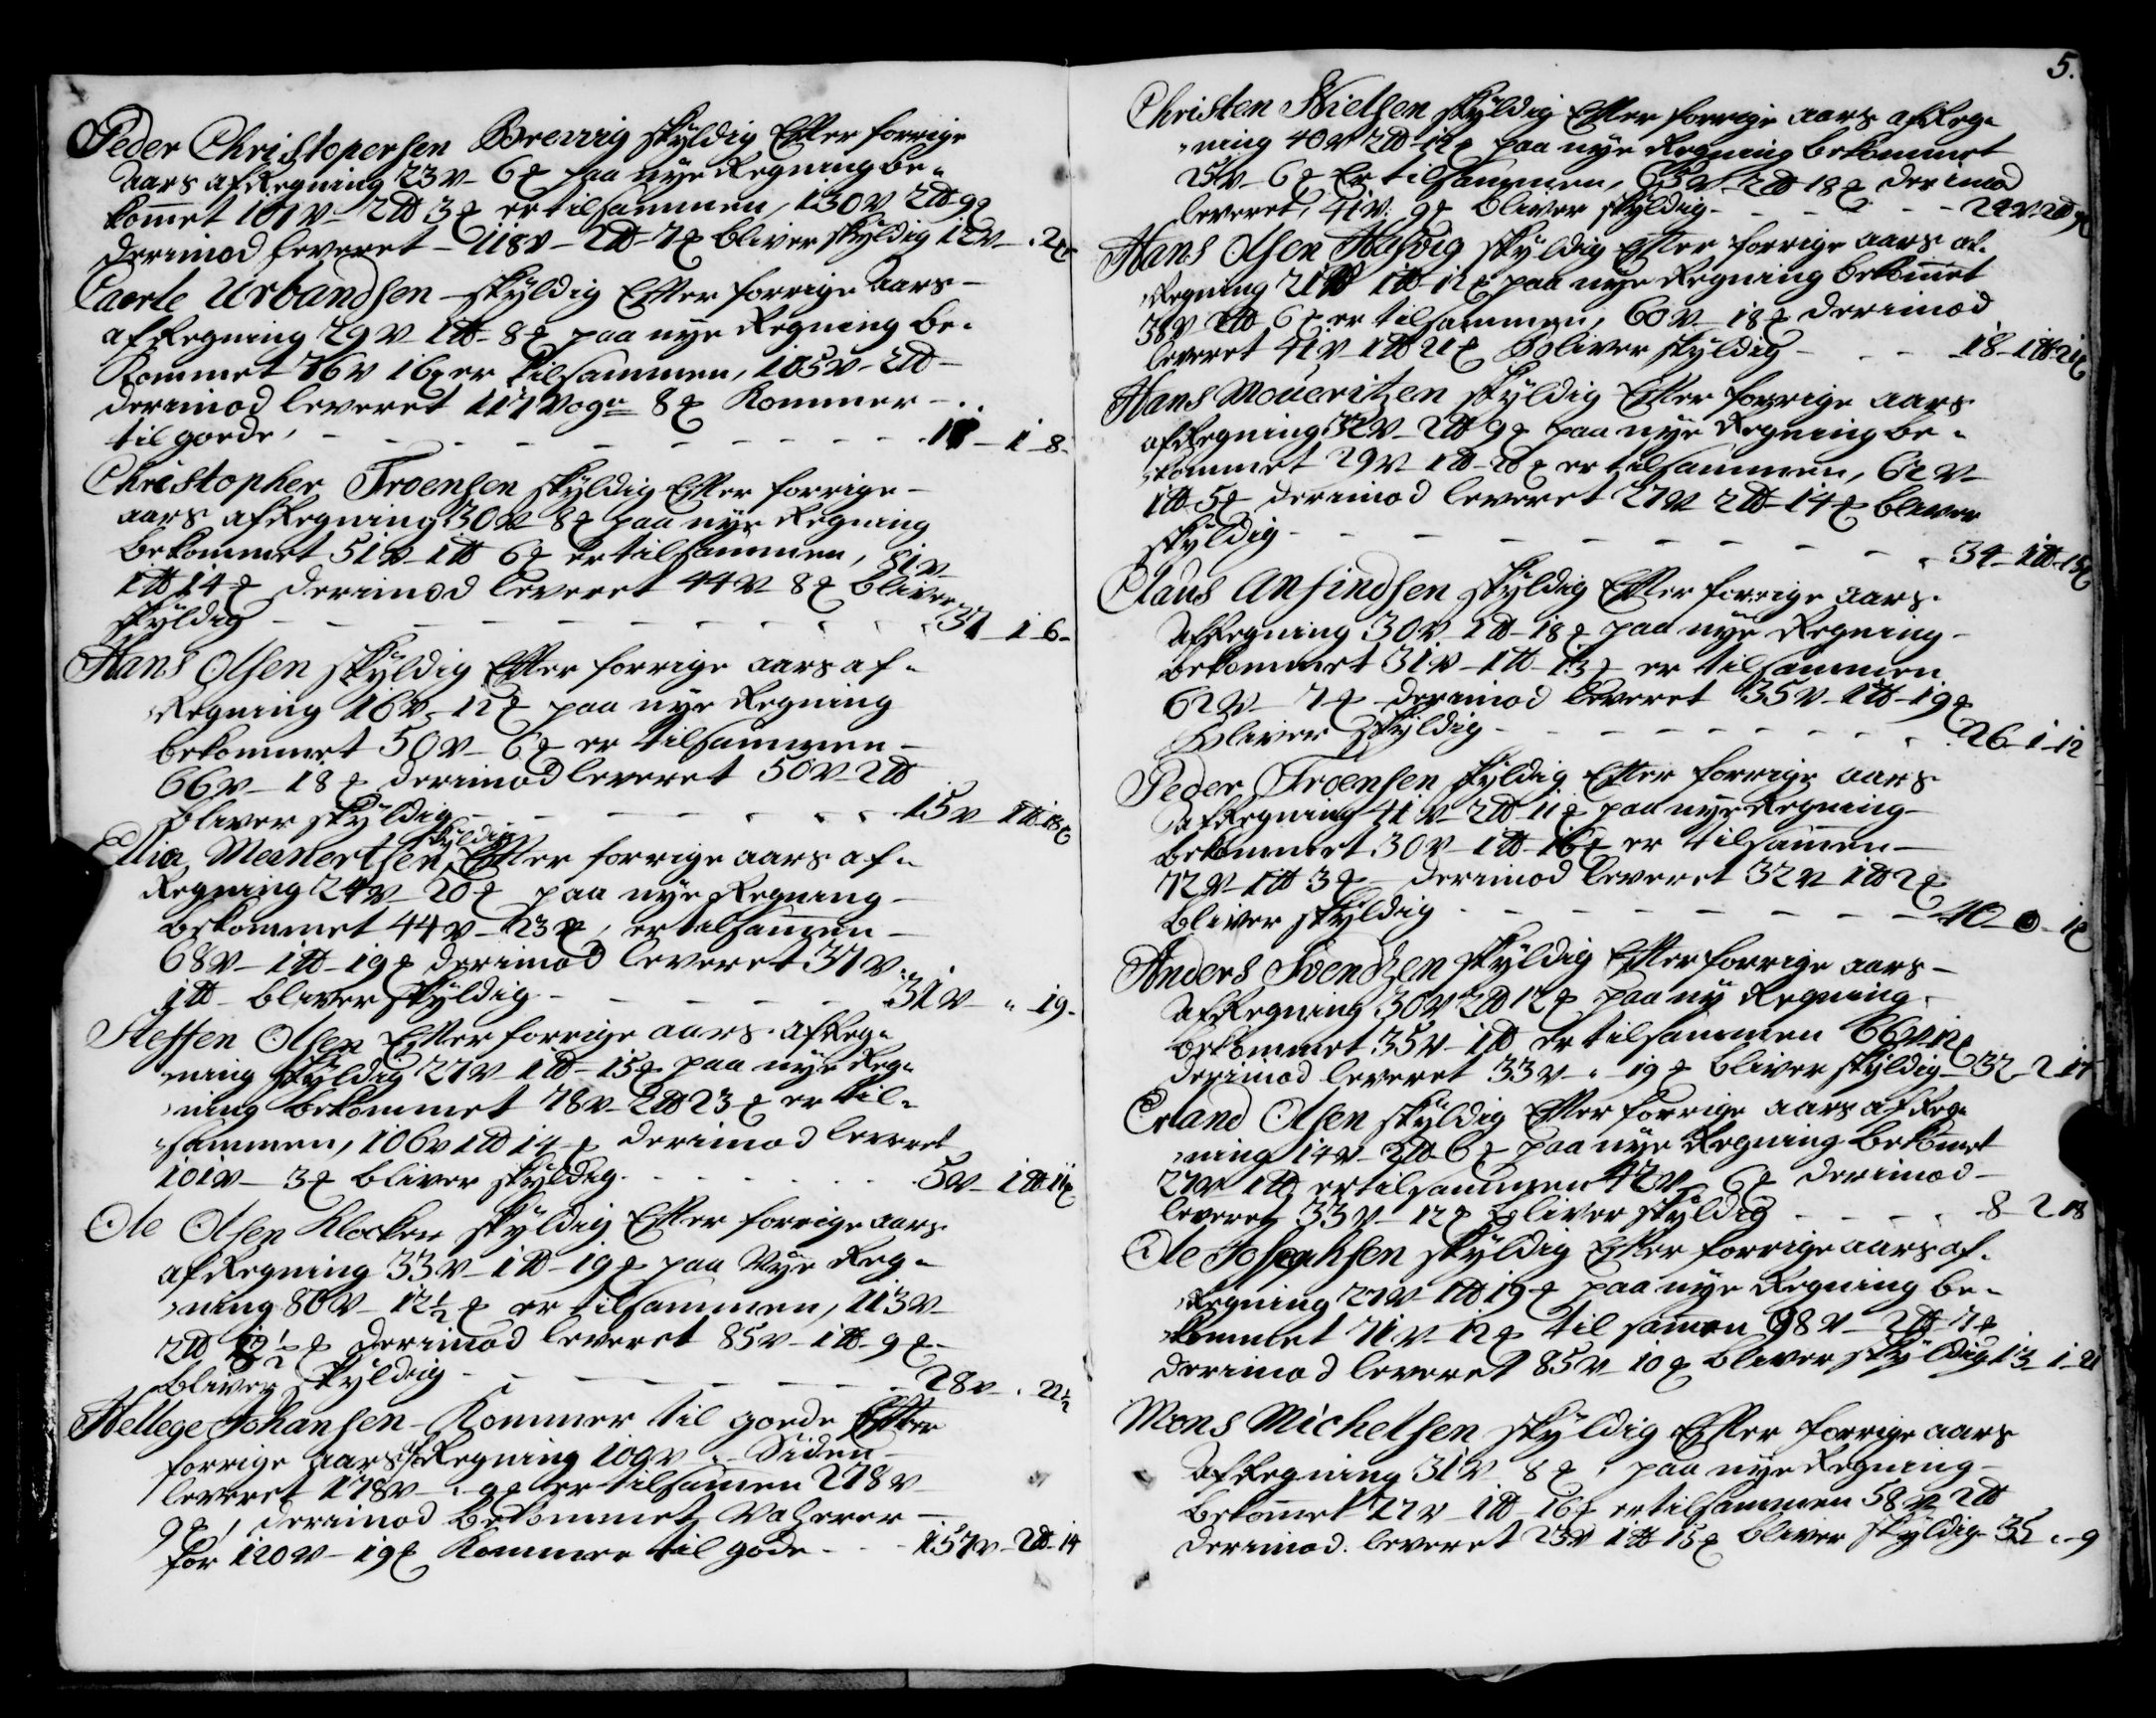 Peder Christopersen Brevvig skyldig Efter forrige
Aars afRegning 23V 6℔ paa nye Regning be-
kommet 107V 2 3℔ er tilsammen, 130V 2 9℔
derimod leveret 118V 2 7℔ bliver skyldig 12V " 2℔
Caerle Urbandsen skyldig Efter forrige Aars
afRegning 29V 1 8℔ paa nye Regning be-
kommet 76V 16℔ er tilsammen, 105V 2
derimod leveret 117 Voger 8℔ Kommer
til goede, 11 1 8
Christopher Troensen skyldig Efter forrige
aars afRegning 30V 8℔ paa nye Regning
bekommet 51V 1 6℔ er tilsammen, 81V
1 14℔ derimod leveret 44V 8℔ bliver
skyldig 37 1 6
Hans Olsen skyldig Efter forrige aars af-
Regning 16V 12℔ paa nye Regning
bekommet 50V 6℔ er tilsammen
66V 18℔ derimod leveret 50V 2
bliver skyldig 15V 1 18℔
Ellia Meenertsen skyldig Efter forrige aars af-
Regning 24V 20℔ paa nye Regning
bekommet 44V 23℔, er tilsamen
68V 1 19℔ derimod leveret 37V
1 bliver skyldig 31V " 19
Steffen Olsen Efter forrige aars afReg-
ning skyldig 27V 1 15℔ paa nye Reg-
ning bekommet 78V 2 23℔ er til-
sammen, 106V 1 14℔ derimod leveret
101V 3℔ bliver skyldig 5V 1 11℔
Ole Olsen Klocker skyldig Efter forrige aars
afRegning 33V 1 19℔ paa Nye Reg-
ning 80V 12½℔ er tilsammen, 113V
2 ½℔ derimod leveret 85V 1 9℔
bliver skyldig 28V " 22½
Hellege Johansen Kommer til goede Efter
forrige aars afRegning 109V Siden
leveret 178V " 9℔ er tilsamen 278V
9℔, derimod bekommet Vaherer
for 120V 19℔ Kommer til gode 157V 2 14
5.
Christen Nielsen skyldig Efter forrige aars afReg-
ning 40V 2 12℔ paa nye Regning bekommet
25V 6℔ Er tilsammen, 65V 2 18℔ derimod
leveret, 41V 9℔ bliver skyldig 24V 2 9℔
Hans Olsen skyldig Efter forrige aars af-
Regning 21V 1 12℔ paa nye Regning bekommet
38V 1 6℔ er tilsammen, 60V 18℔ derimod
leveret 41V 1 21℔ Bliver skyldig 18 1 21℔
Hans Moueritzen skyldig Efter forrige aars
afRegning 32V 2 9℔ paa nye Regning be-
kommet 29V 1 20℔ er tilsammen, 62V
1 5℔ derimod leveret 27V 2 14℔ bliver
skyldig 34 1 15℔
Claus Anfindsen skyldig Efter forrige aars
afRegning 30V 1 18℔ paa nye Regning
bekommet 31V 1 13℔ er tilsammen
62V 7℔ derimod leveret 35V 1 19℔
Bliver skyldig 26 1 12
Peder Troensen skyldig Efter forrige aars
afRegning 41V 2 11℔ paa nye Regning
bekommet 30V 1 16℔ er tilsamen
72V 1 3℔ derimod leveret 32V 1 2℔
bliver skyldig 40 0 1℔
Anders Svendzen skyldig Efter forrige aars
afRegning 30V 2 12℔ paa ny Regning
bekommet 35V 1 er tilsammen 66V 12℔
derimod leveret 33V " 19℔ bliver skyldig 32 2 17
Erland Olsen skyldig Efter forrige aars afReg-
ning 14V 2 6℔ paa nye Regning bekomet
27V 1 er tilsammen 42V 6℔ derimod
leveret 33V 12℔ Bliver skyldig 8 2 18
Ole Josephsen skyldig Efter forrige aars af-
Regning 27V 1 19℔ paa nye Regning be-
kommet 71V 12℔ til samen 98V 2 7℔
derimod leveret 85V 10℔ bliver skyldig 13 1 21
Mons Michelsen skyldig Efter forrige aars
afRegning 31V 8℔, paa nye Regning
bekomet 27V 1 16℔ er tilsammen 58V 2
derimod leveret 23V 1 15℔ bliver skyldig 35 " 9